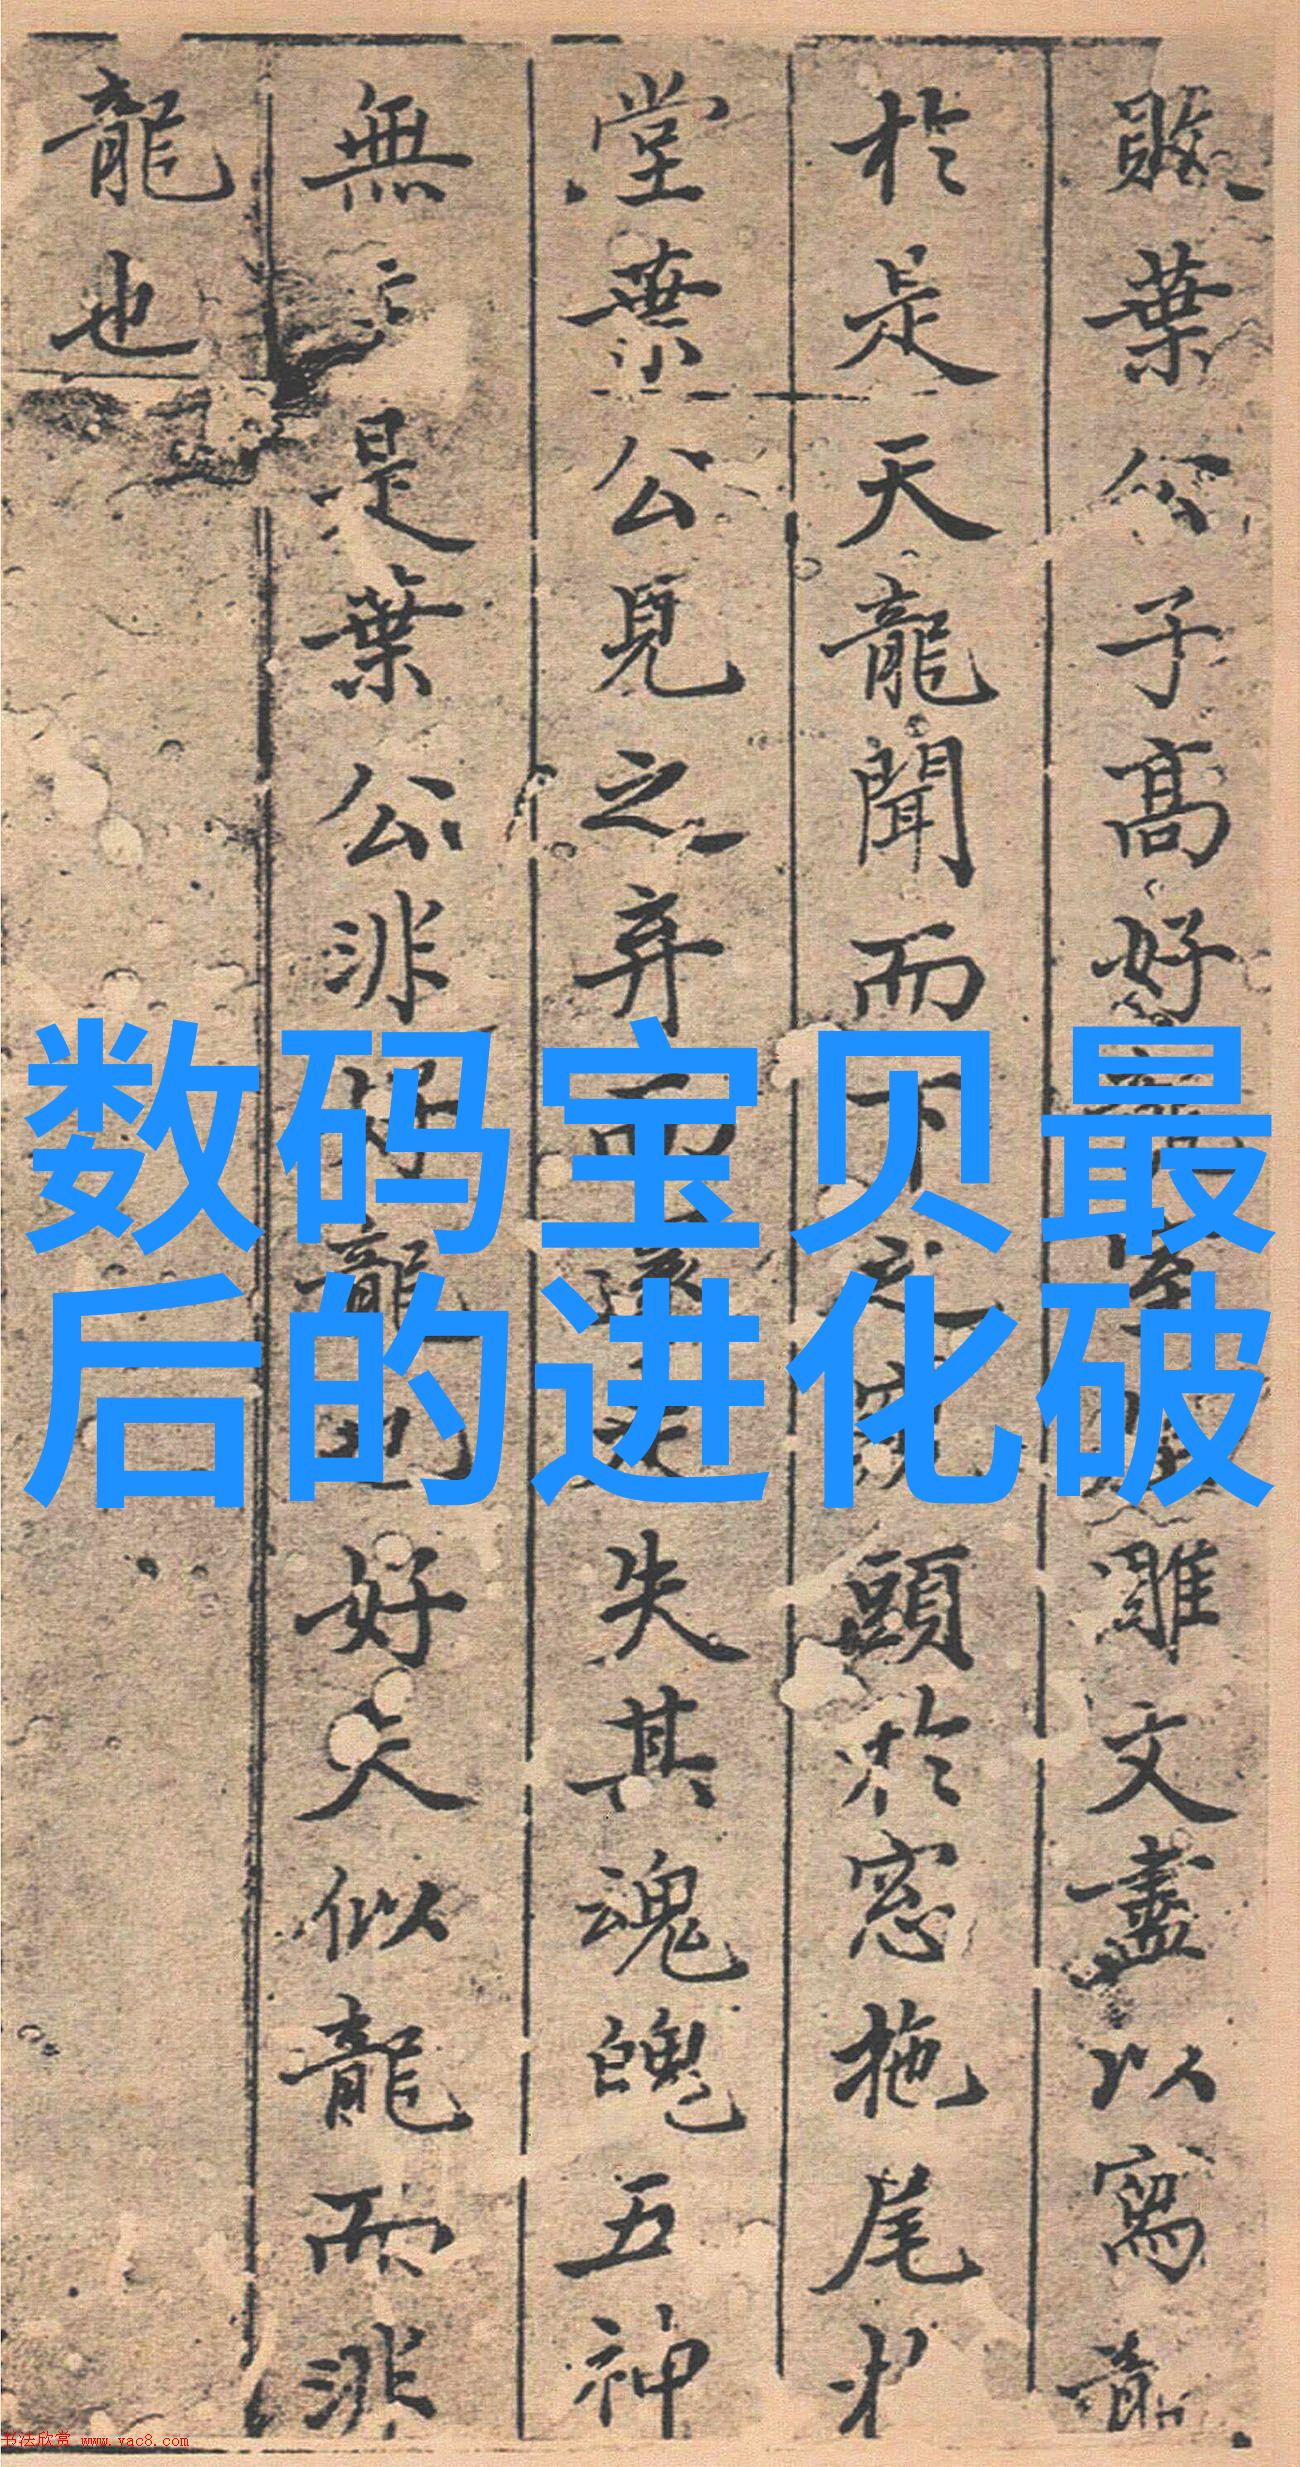 葉公子高好龍雕文盡以寫龍
於是天龍聞而下之窺頭於窓拖尾於
堂葉公見之弃而還走失其魂魄五神
無主是葉公非好龍也好夫似龍而非
龍也
数码宝贝最
后的进化破
书法欣赏 www.yac8.com